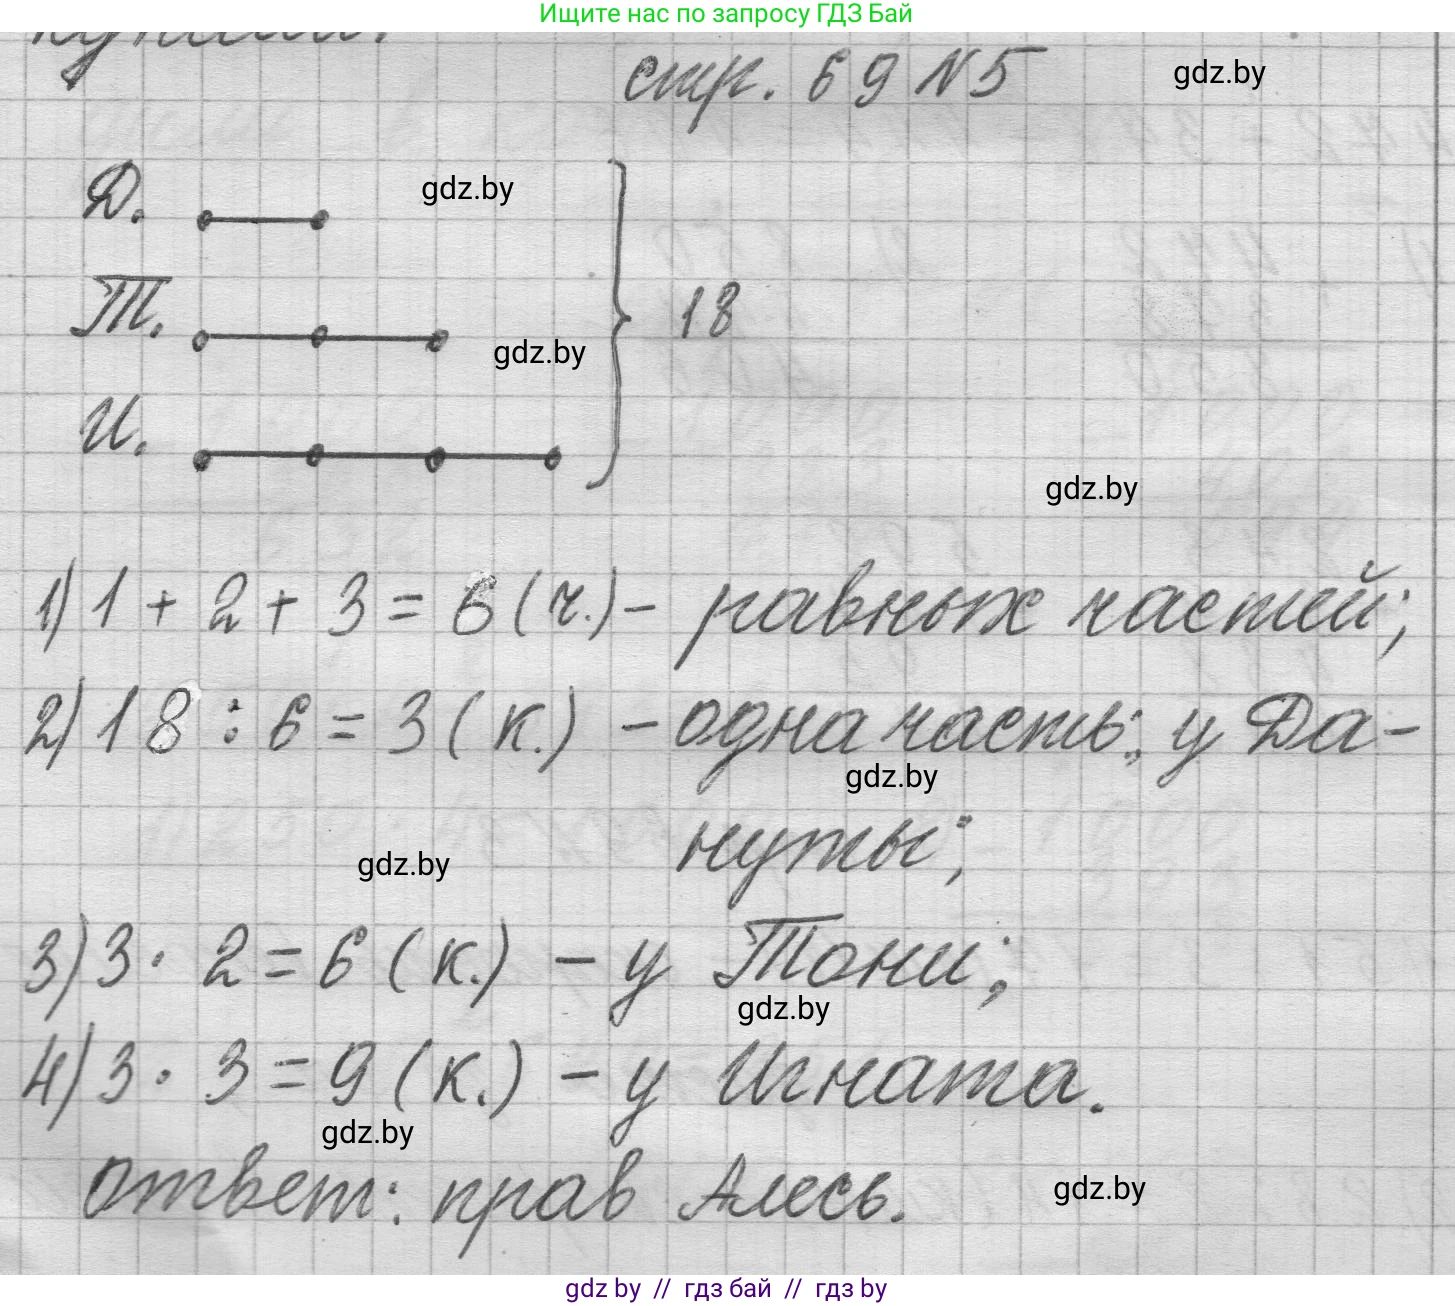 Ищите нас по запросу ГДЗ Бай
стр. 69 N5
gdz.by
Д.
gdz.by
Т.
18
gdz.by
И.
gdz.by
1) 1 + 2 + 3 = 6 (ч.) - равных частей;
2) 18 : 6 = 3 (к.) - одна часть; у Да-
gdz.by
нуты;
gdz.by
3) 3 · 2 = 6 (к.) - у Тони;
gdz.by
4) 3 · 3 = 9 (к.) - у Игната.
gdz.by
ответ: прав Алесь.
gdz.by
gdz by // гдз бай // гдз by